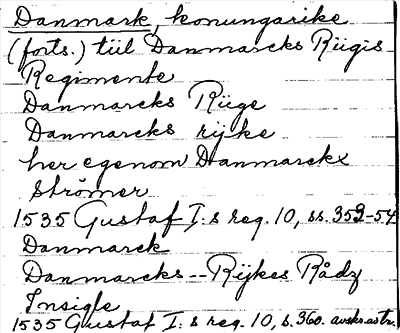 Danmark, konungarike
(forts.) tiil Danmarcks Riigis
Regimente
Danmarcks Riige
Danmarcks rijke
her egenom Danmarckx
Strömer
1535 Gustaf I:s reg. 10, ss. 353-54
Danmarck
Danmarcks--Rijkes Rådz
Insigle
1535 Gustaf I:s reg. 10, s. 360. avskr. astr.